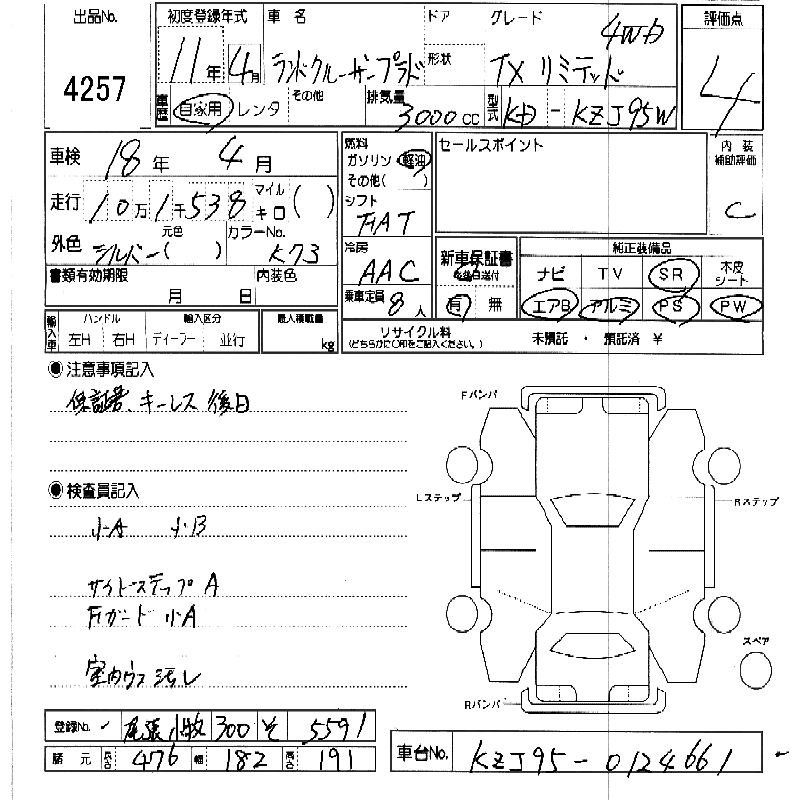 出品No. 4257
初度登録年式 11年 4月
車名 ランドクルーザープラド
ドア 形状
グレード 4WD TXリミテッド
評価点 4
車歴 自家用 レンタ その他
排気量 3000cc
型式 KD-KZJ95W
車検 18年 4月
走行 10万1千538 マイル キロ( )
外色 シルバー 元色( ) カラーNo. K73
書類有効期限 月 日 内装色
燃料 ガソリン 軽油 その他( )
シフト FAT
冷房 AAC
乗車定員 8人
セールスポイント
内装補助評価 C
新車保証書 有 無
純正装備品
ナビ TV SR 本皮シート
エアB アルミ PS PW
輸入車 ハンドル 左H 右H 輸入区分 ディーラー 並行
最大積載量 kg
リサイクル料 (どちらかに○印をご記入ください。) 未預託・預託済 ¥
●注意事項記入
保証書、キーレス後日
●検査員記入
小A 小B
サイドステップA
Fガード 小A
室内ウス汚レ
Fバンパ
Lステップ
Rステップ
スペア
Rバンパ
登録No. 尾張小牧 300 そ 5591
諸元 長さ 476 幅 182 高さ 191
車台No. KZJ95-0124661